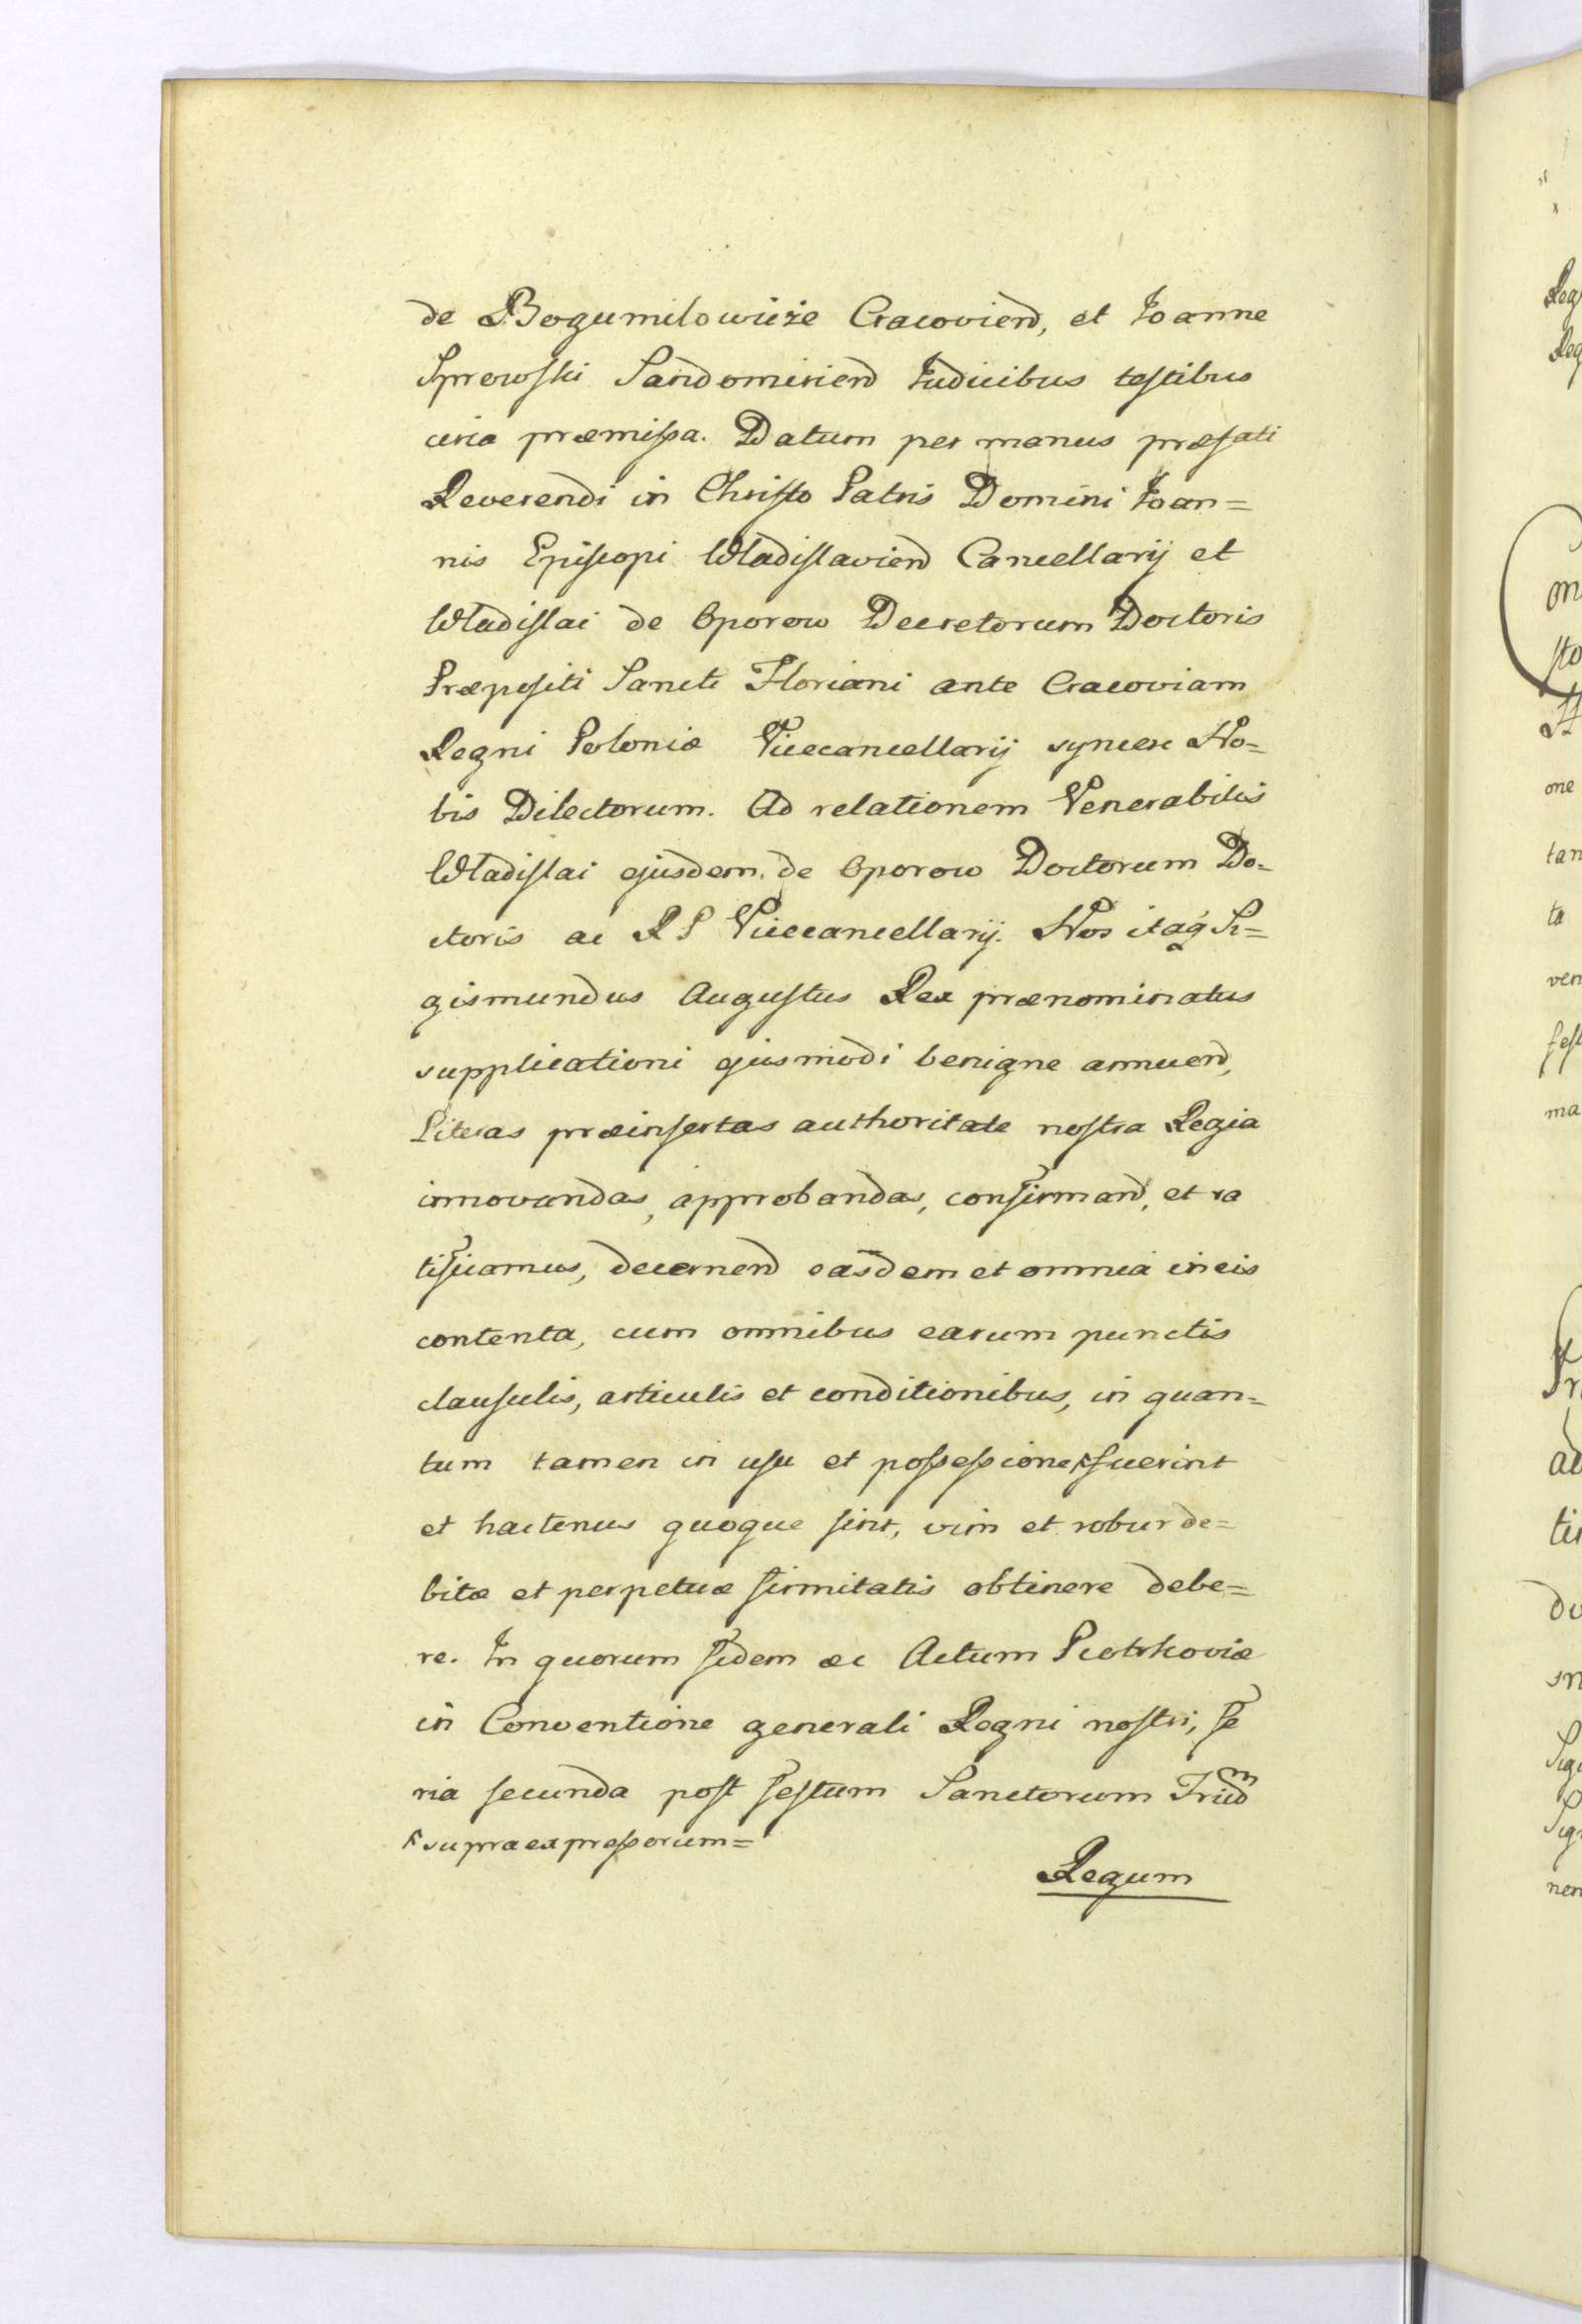 de Bogumilowicze Cracovien, et Joanne
Sprowski Sandomirien Judicibus testibus
circa præmissa. Datum per manus præfati
Reverendi in Christo Patris Domini Joan=
nis Episcopi Wladislavien Cancellarij et
Wladislai de Oporow Decretorum Doctoris
Præpositi Sancti Floriani ante Cracoviam
Regni Poloniæ Vicecancellarij syncere No=
bis Dilectorum. Ad relationem Venerabilis
Wladislai ejusdem de Oporow Doctorum Do=
ctoris ac R P Vicecancellarij. Nos itaq Si=
gismundus Augustus Rex prænominatus
supplicationi ejusmodi benigne annuen,
Literas præinsertas authoritate nostra Regia
innovandas, approbandas, confirman, et ra
tificamus, decernen easdem et omnia in eis
contenta, cum omnibus earum punctis
clausulis, articulis et conditionibus, in quan=
tum tamen in usu et possessione fuerint
et hactenus quoque sint, vim et robur de=
bitæ et perpetuæ firmitatis obtinere debe=
re. In quorum fidem &c Actum Piotrkoviæ
in Conventione generali Regni nostri, fe
ria secunda post festum Sanctorum Triu m
supraexpressorum=
Regum